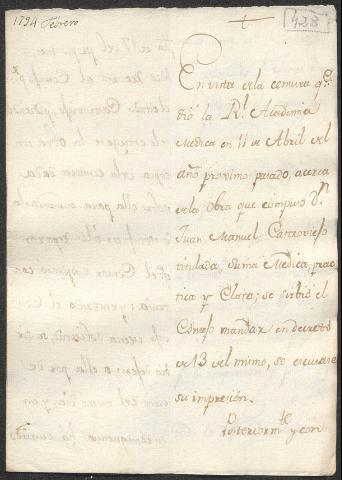 1794 Febrero
428
En vista de la censura qe.
dió la Rl. Academia
Medica en 11 de Abril del
año proximo pasado, acerca
de la Obra que compuso Dn.
Juan Manuel
titulada, Suma Medica, prac
tica y Clara; se sirbió el
Consejo mandar en decreto
de 13 del mismo, se escusase
su impresión.
Posteriormte. y con